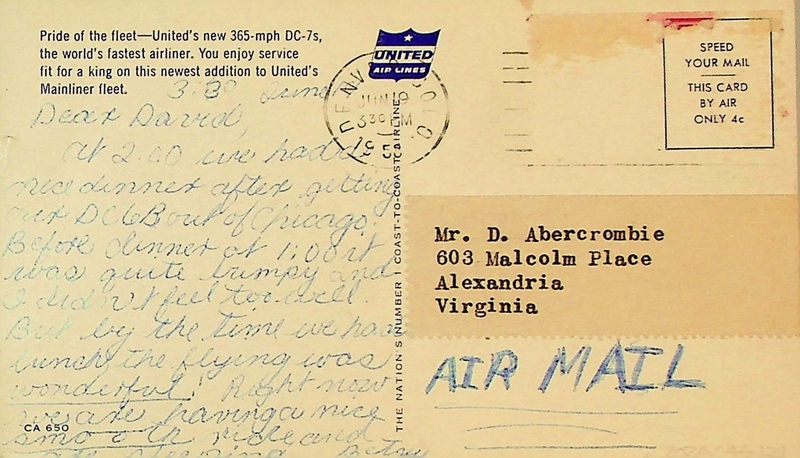 Pride of the fleet—United's new 365-mph DC-7s,
the world's fastest airliner. You enjoy service
fit for a king on this newest addition to United's
Mainliner fleet.
UNITED
AIR LINES
SPEED
YOUR MAIL
THIS CARD
BY AIR
ONLY 4c
JUN 9
3 30 PM
3:30 June
Dear David,
At 2:00 we had a
nice dinner after getting
our DC6B out of Chicago.
Before dinner at 1:00 it
was quite bumpy and
I didn't feel too well.
But by the time we had
lunch, the flying was
wonderful! Right now
we are having a nice
smooth ride and
Betsy
CA 650
THE NATION'S NUMBER 1 COAST-TO-COAST AIRLINE
Mr. D. Abercrombie
603 Malcolm Place
Alexandria
Virginia
AIR MAIL